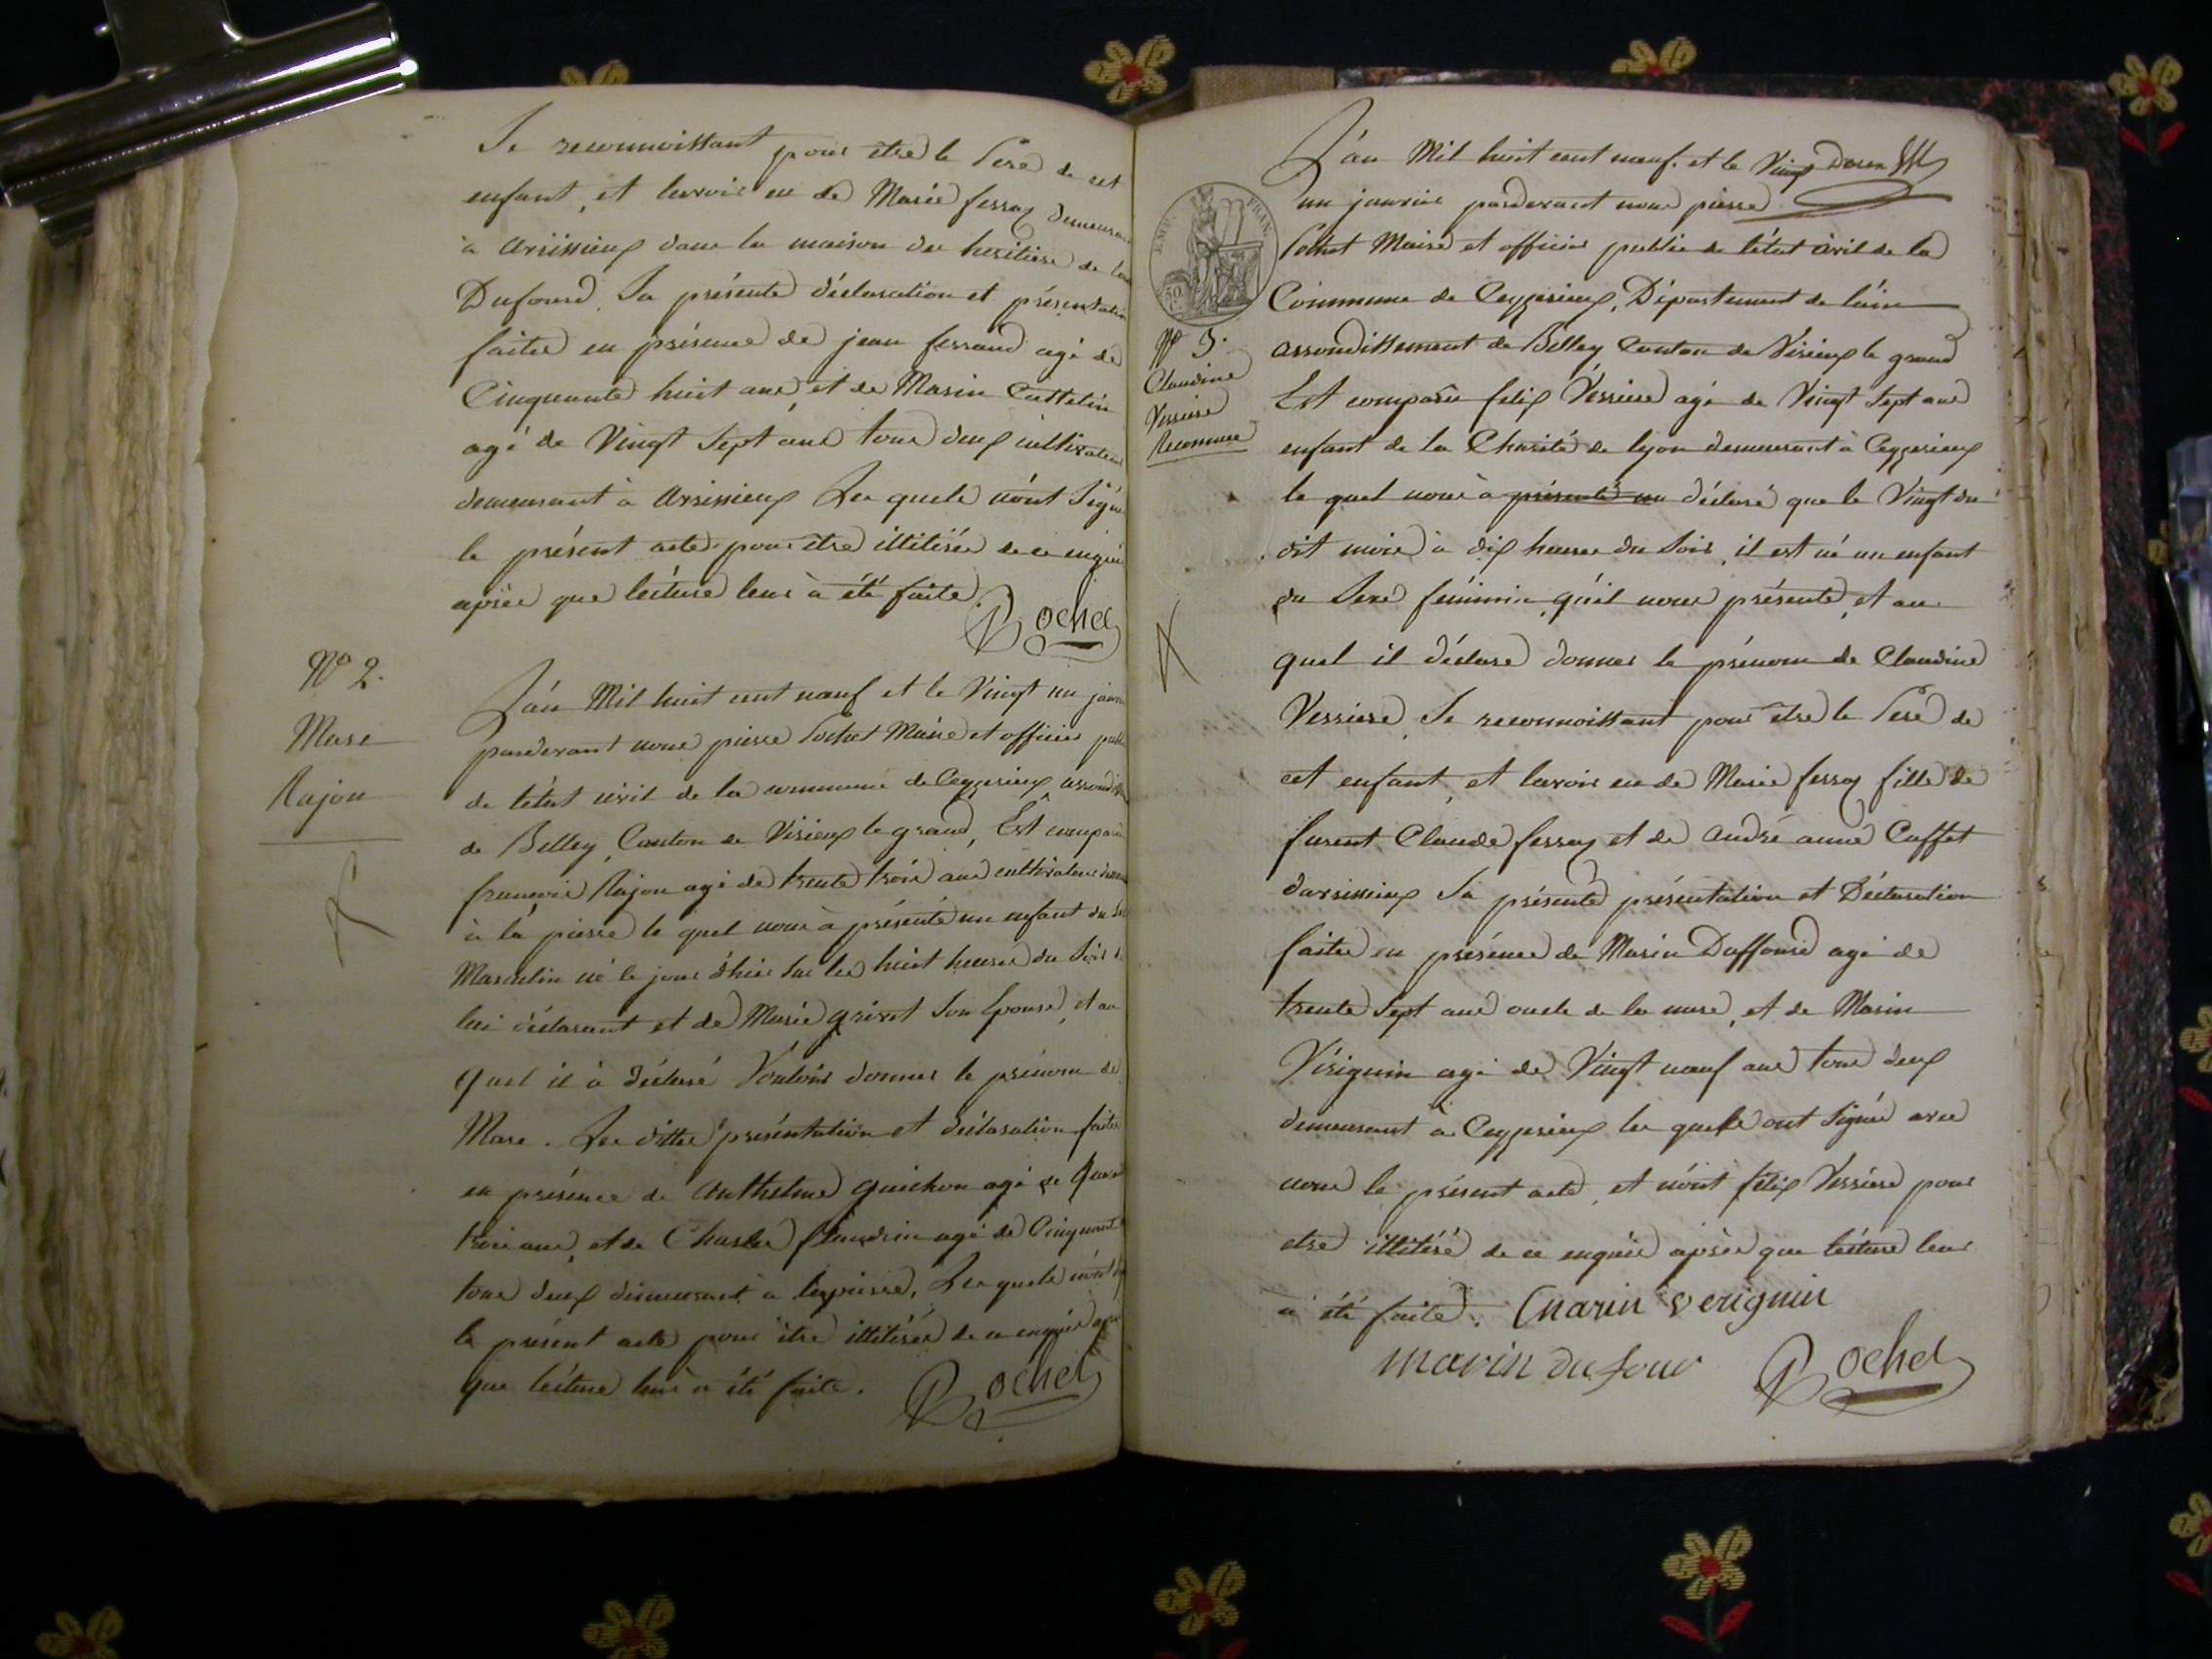 Se reconnoissant pour être le Pere de cet
enfant, et lavoir eu de Marie ferray demeurant
à arsissieux dans la maison des heritiers de
Dufour. La présente déclaration et présentation
faites en présence de jean ferrand agé de
Cinquante huit ans, et de Marin Cattelin
agé de Vingt Sept ans tous deux cultivateurs
demeurant à Arsissieux Les quels n'ont Signé
le présent acte pour être illitérés de ce enquis
après que lécture leur à été faite.
Pochet
N° 2.
Marc
Rajon
L'an Mil huit cent neuf et le Vingt un janvier
pardevant nous pierre Pochet Maire et officier public
de l'état civil de la commune de Ceyzerieux, arrondis
de Belley, Canton de Virieux le grand, Est comparu
françois Rajon agé de trente trois ans cultivateur
à la pierre le quel nous à présenté un enfant du
Masculin né le jour d'hier sur les huit heures du Soir de
lui déclarant et de Marie grivet Son Epouse, et au
quel il à déclaré Vouloir donner le prénom de
Marc. Les dittes présentation et déclaration faites
en présence de Anthelme guichon agé de
trois ans, et de Charles flandrin agé de Cinquante
tous deux demeurant à leyssine, Les quels n'ont
le présent acte pour être illitérés de ce enquis après
que lécture leur à été faite.
Pochet
EMP. FRAN.
N° 3.
Claudine
Verriere
Reconnue
L'an Mil huit cent neuf. et le Vingt
un janvier pardevant nous pierre
Pochet Maire et officier public de l'état Civil de la
Commune de Ceyzerieux, Département de l'ain
arrondissement de Belley Canton de Virieux le grand
Est comparu felix Verriere agé de Vingt Sept ans
enfant de la Charité de lyon demeurant à Ceyzerieux
le quel nous à présenté un déclaré que le Vingt du
dit mois à dix heures du Soir, il est né un enfant
du Sexe féminin qu'il nous présente, et au
quel il déclare donner le prénom de Claudine
Verriere, Se reconnoissant pour être le Pere de
cet enfant, et lavoir eu de Marie ferray fille de
furent Claude ferray et de andré anne Caffet
darsissieux La présente présentation et Déclaration
faites en présence de Marin Duffour agé de
trente Sept ans oncle de la mere, et de Marin
Vériguin agé de Vingt neuf ans tous deux
demeurant à Ceyzerieux les quels ont Signés avec
nous le présent acte, et n'ont félix Verriere pour
etre illitéré de ce enquis après que lécture leur
à été faite. Marin veriguin
marin dufour Pochet